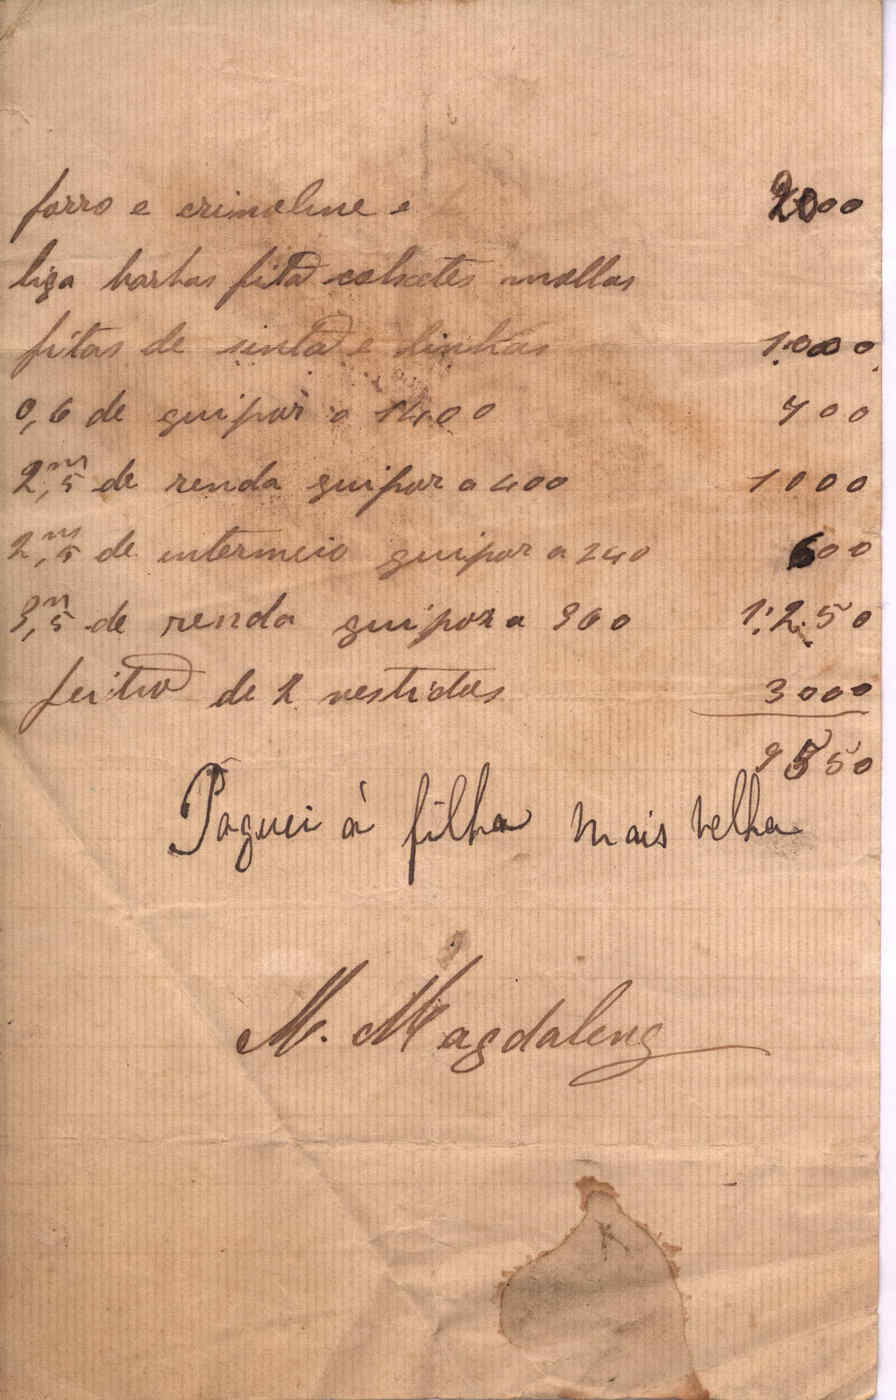 forro e crinoline e 2000
liga barbas fita colxetes mollas
fitas de sinta e linhas 1:000
0,6 de guipur a 1400 700
2,m5 de renda guipur a 400 1000
2,m5 de intermeio guipur a 240 600
3,m5 de renda guipur a 360 1:250
feitio de 2 vestidos 3000
9550
Paguei á filha mais velha
M. Magdalena